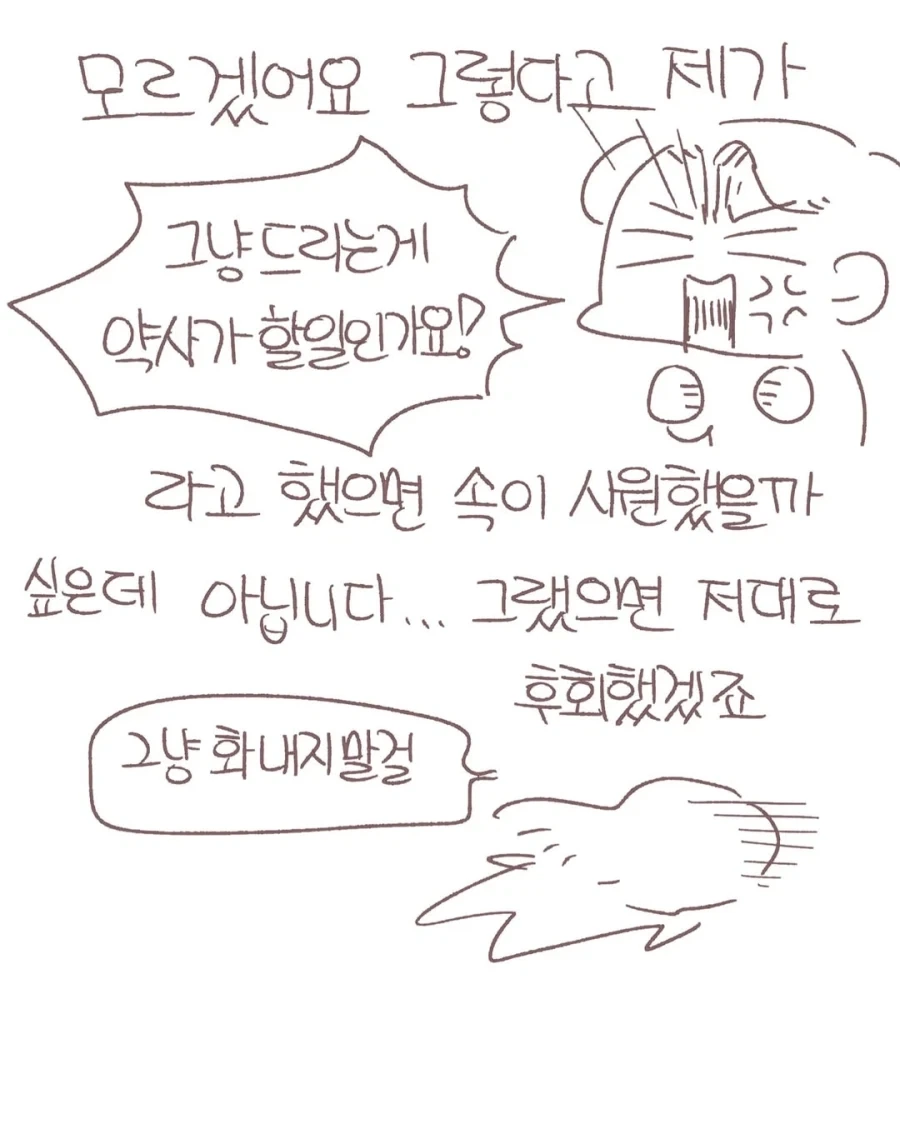 모르겠어요 그렇다고 제가
그냥 드리는게
약사가 할일인가요!
라고 했으면 속이 시원했을까
싶은데 아닙니다... 그랬으면 저대로
후회했겠죠
그냥 화내지말걸